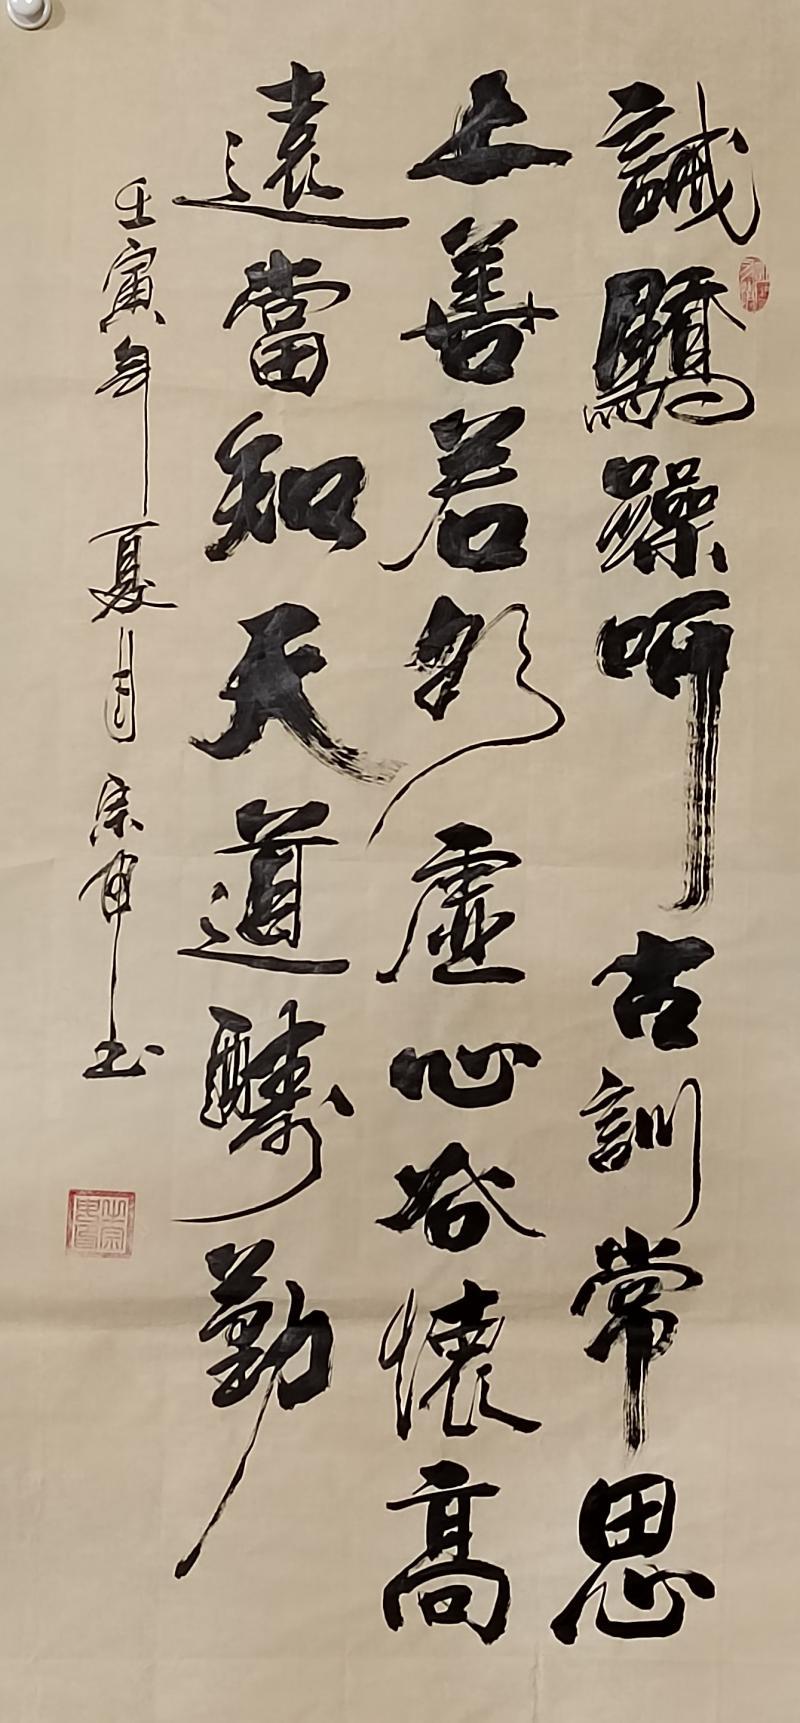 誡驕躁呵古訓常思
上善若水虛心谷懷高
遠當知天道醻勤
壬寅年夏月宗申书